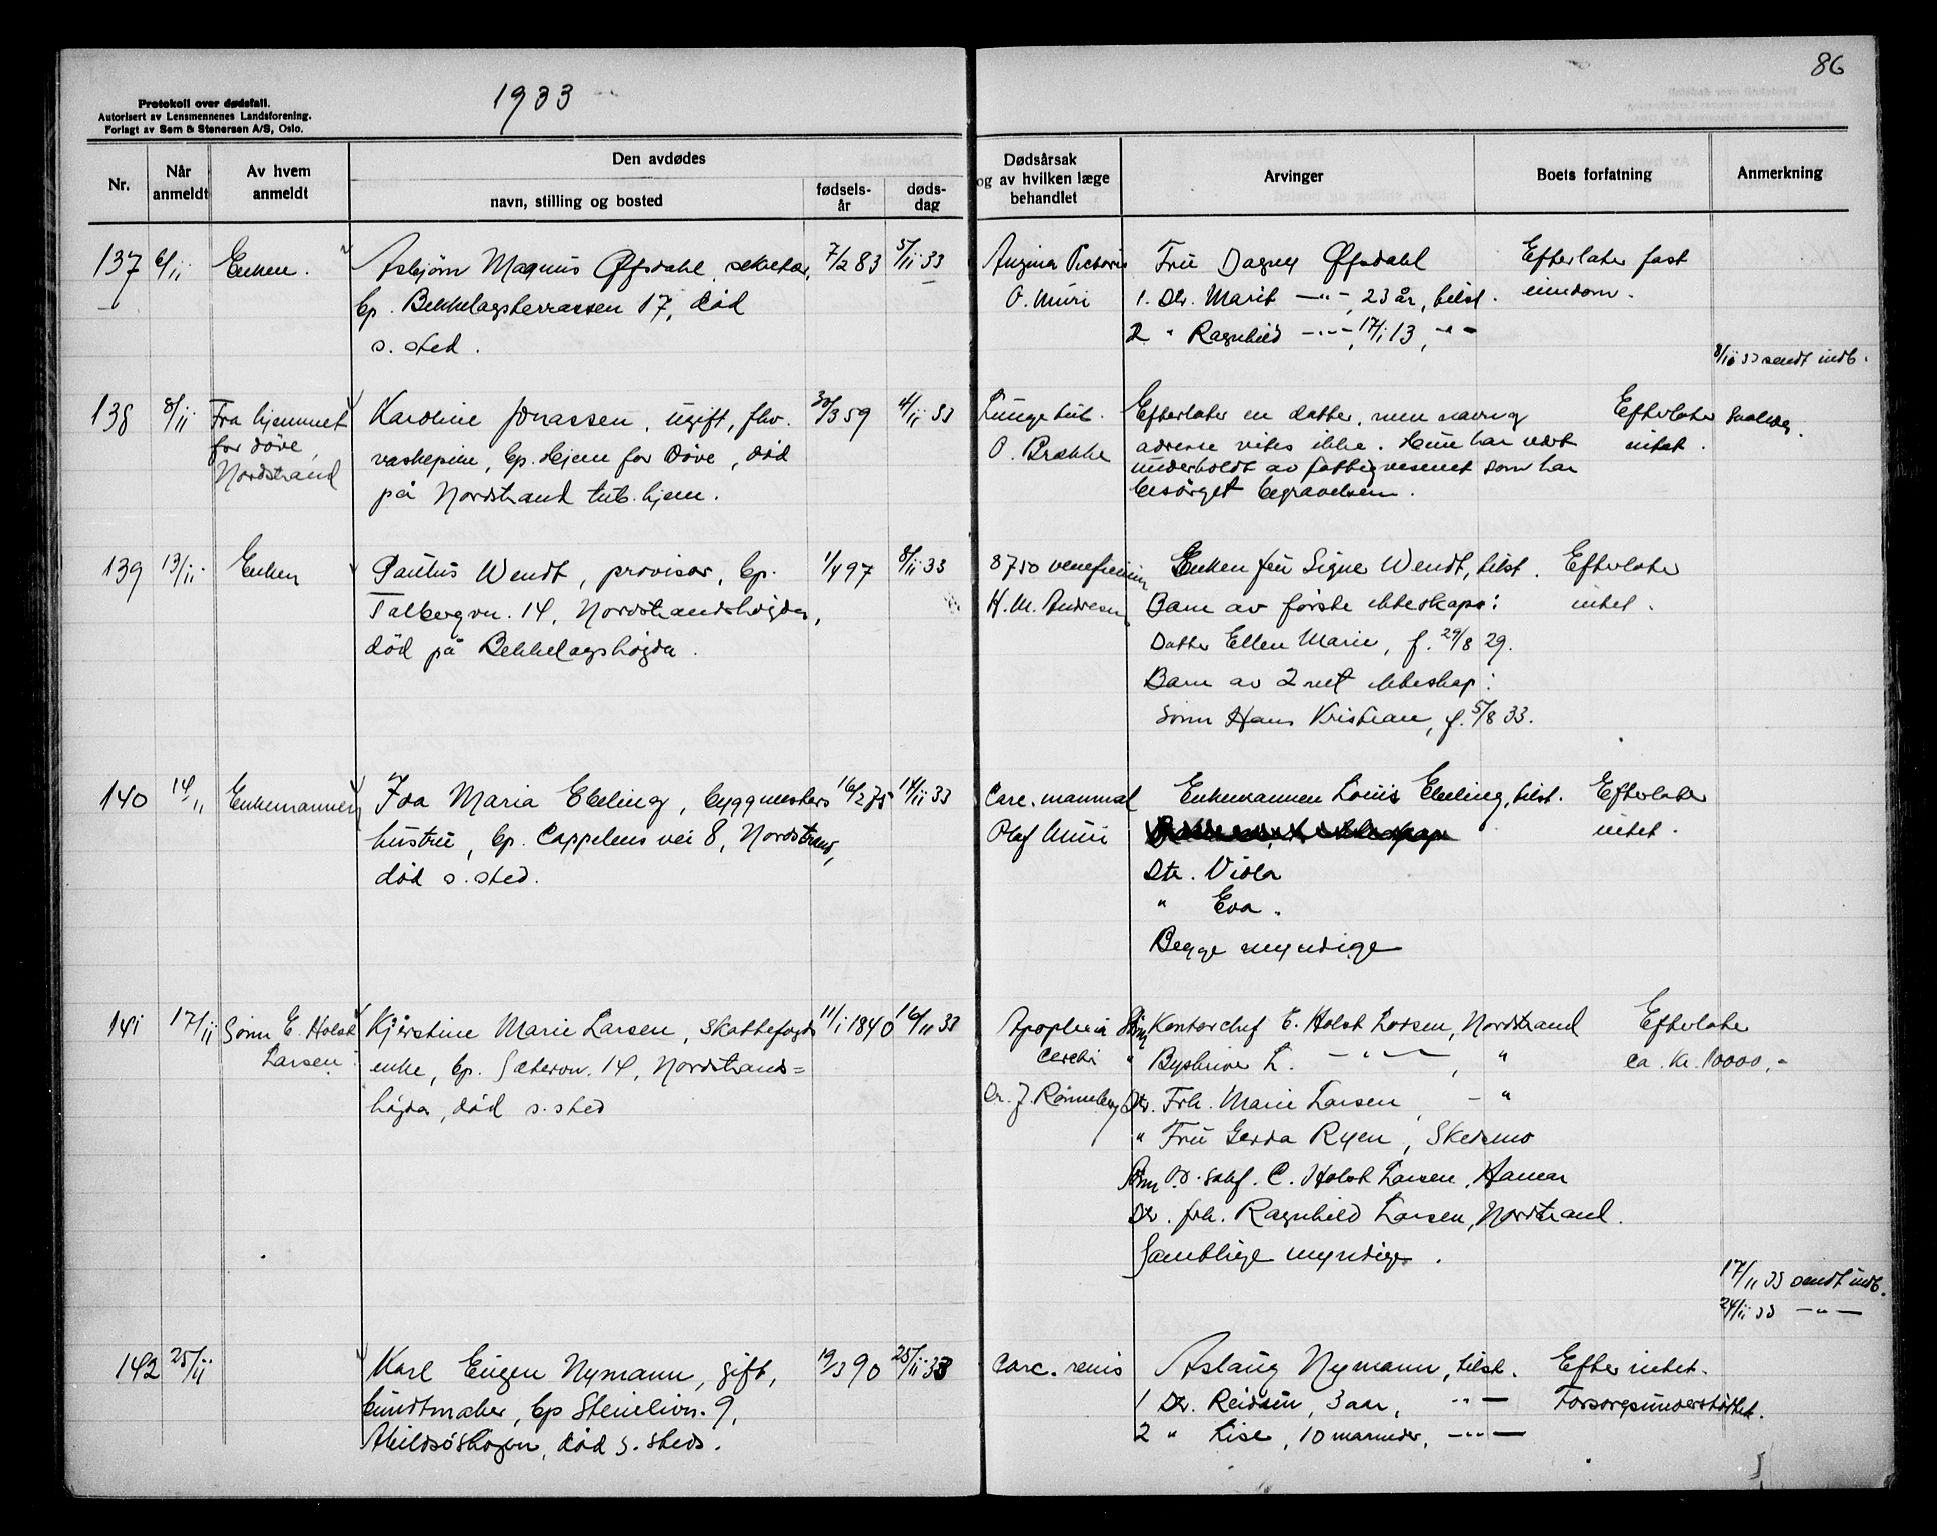 1933
86
Protokoll over dødsfall.
Autorisert av Lensmennenes Landsforening.
Forlagt av Sem & Stenersen A/S, Oslo.
Nr.
Når anmeldt
Av hvem anmeldt
Den avdødes
navn, stilling og bosted
fødsels-år
døds-dag
Dødsårsak og av hvilken læge behandlet
Arvinger
Boets forfatning
Anmerkning
137 6/11 Enken. Asbjørn Magnus Øfsdahl sekretær, 7/2 83 5/11 33 Angina Pectoris Fru Dagny Øfsdahl Efterlater fast
bp. Bekkelagsterrassen 17, død O. Muri 1. Dtr. Marit —"—, 23 år, tilst. eiendom.
s. sted. 2 " Ragnhild —"—, 17/1 13, —"—
8/11 33 sendt indb.
138 8/11 Fra hjemmet Karoline Jonassen, ugift, fhv. 30/3 59 4/11 33 Lungetub. Efterlater en datter, men navn og Efterlater
for døve, vaskepike, bp. Hjem for Døve, død O. Brække adresse vites ikke. Hun har vært intet.
Nordstrand på Nordstrand tub. hjem. underholdt av fattigvesenet som har
besørget begravelsen.
139 13/11 Enken Paulus Wendt, provisor, bp. 1/4 97 8/11 33 8750 veneficium Enken fru Signe Wendt, tilst. Efterlater
Talbergvn. 14, Nordstrandshøgda, K. M. Andresen Barn av første ekteskap: intet.
død på Bekkelagshøgda. Datter Ellen Marie, f. 29/8 29.
Barn av 2net ekteskap:
Sønn Hans Kristian, f. 5/8 33.
140 14/11 Enkemannen Ida Maria Ebeling, byggmesters 16/2 75 14/11 33 Carc. mammae Enkemannen Louis Ebeling, tilst. Efterlater
hustru, bp. Cappelens vei 8, Nordstrand, Olaf Muri intet.
død s. sted. Dtr. Viola
" Eva.
Begge myndige
141 17/11 Sønn E. Holst Kjerstine Marie Larsen, skattefogds 11/1 1840 16/11 33 Apoplexia Sønn Kontorchef E. Holst Larsen, Nordstrand Efterlater
Larsen. enke, bp. Sætervn. 14, Nordstrands= cerebri " Byskriver L. —"—, " ca. kr. 10000,-
høgda, død s. sted Dr. J. Rønneberg Dtr. Frk. Marie Larsen, — "
" Fru Gerda Ryen, Skedsmo
Sønn C. Holst Larsen, Hamar
Dtr. frk. Ragnhild Larsen, Nordstrand.
Samtlige myndige.
17/11 33 sendt indb.
24/11 33 —"—
142 25/11 Karl Eugen Nymann, gift, 19/3 90 25/11 33 Carc. renis Aslaug Nymann, tilst. Efter intet.
buntmaker, bp Steinlivn. 9, 1 Dtr. Reidun, 3 aar, "— Forsorgsunderstøttet.
Abildsøhøgen, død s. steds. 2 " Lise, 10 maaneder, —"—